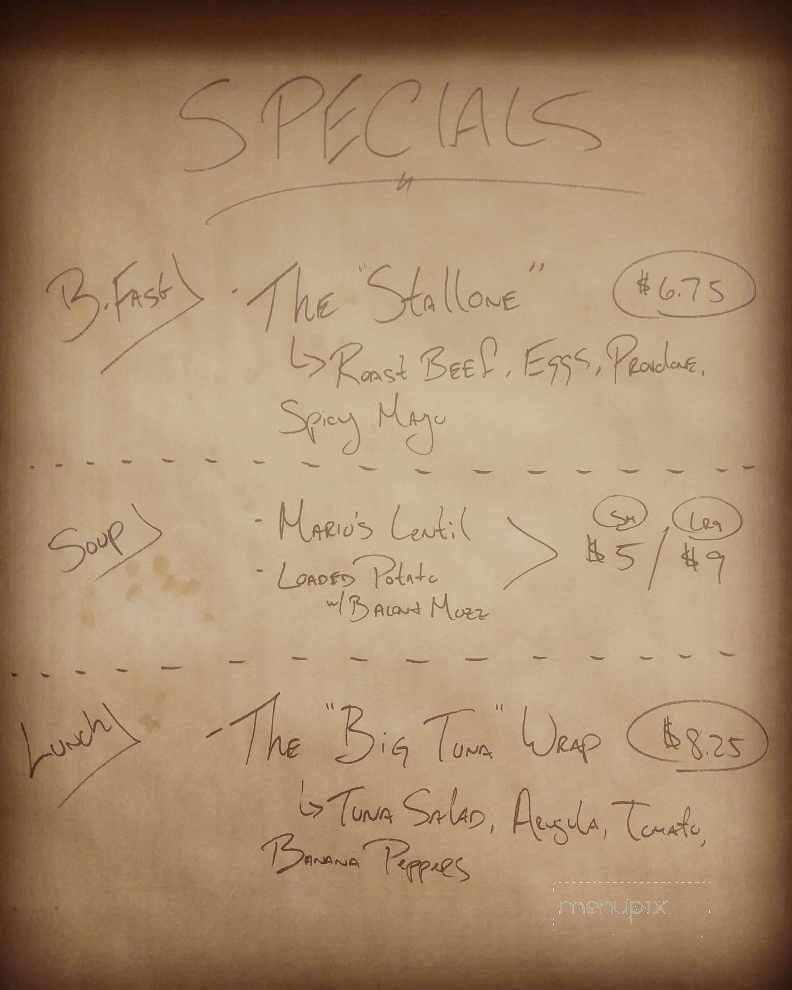 SPECIALS
B.FAST · THE "Stallone" $6.75
ROAST BEEF, EGGS, PROVOLONE,
SPICY MAYO
SOUP - MARIO'S LENTIL SM $5 / LRG $9
- LOADED POTATO
w/ BACON & MOZZ
LUNCH - THE "BIG TUNA" WRAP $8.25
TUNA SALAD, ARUGULA, TOMATO,
BANANA PEPPERS
menupix